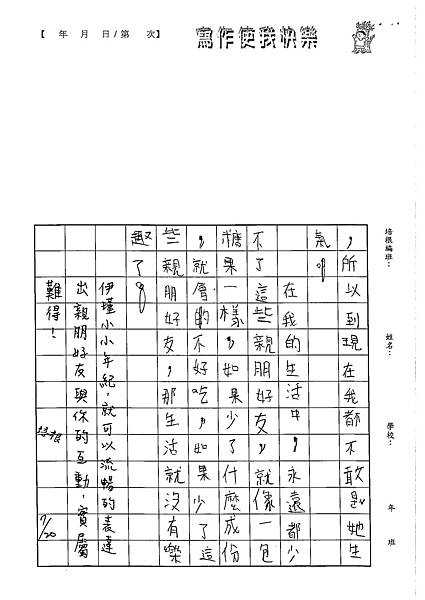 【 年 月 日/第 次】
寫作使我快樂
培根編班：
姓名：
學校：
年 班
，所以到現在我都不敢她生
氣。
在我的生活中，永遠都少
不了這些親朋好友，就像一包
糖果一樣，如果少了什麼成份
，就的不好吃，如果少了這
些親朋好友，那生活就沒有樂
趣了。
伊瑾小小年紀，就可以流暢的表達
出親朋好友與你的互動，實屬
難得！
培根 7/20